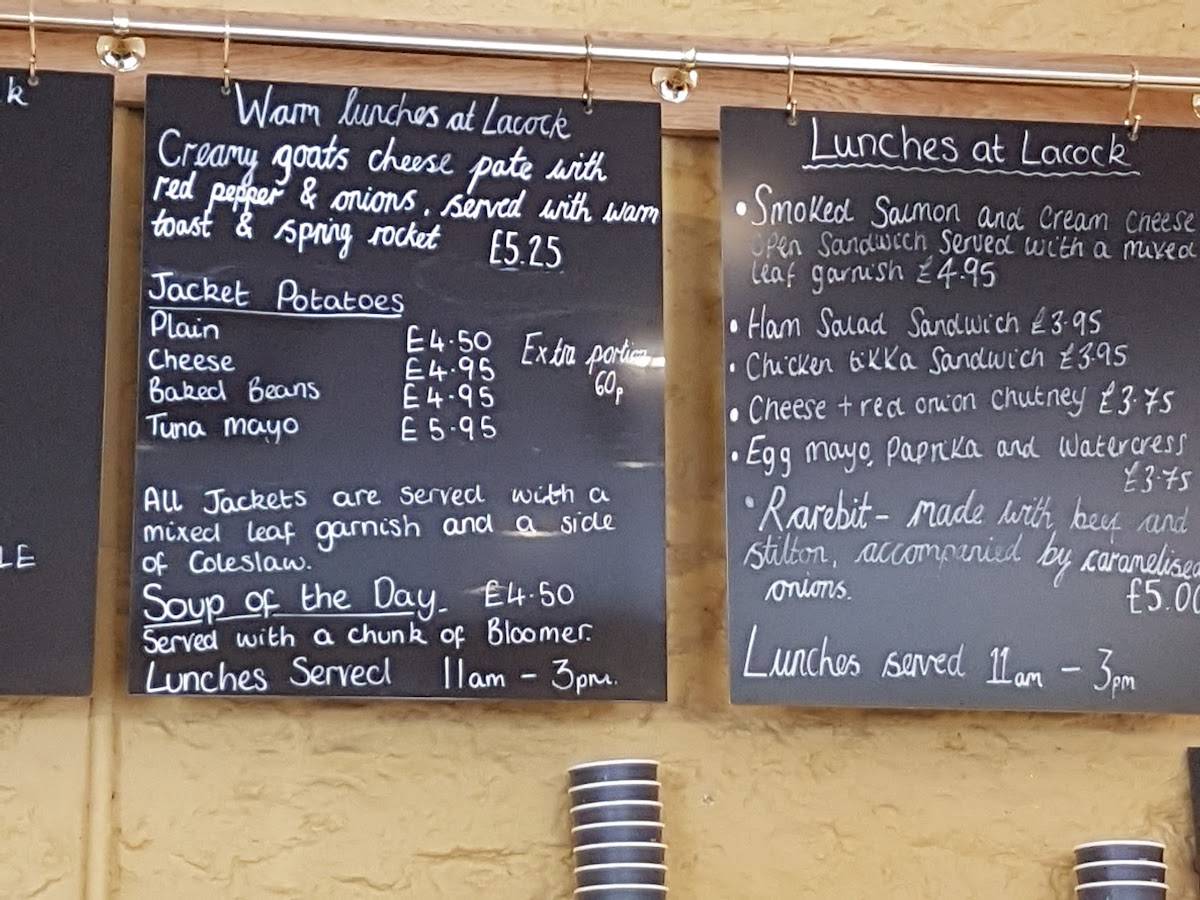 k
LE
Warm lunches at Lacock
Creamy goats cheese pate with
red pepper & onions, served with warm
toast & spring rocket £5.25
Jacket Potatoes
Plain £4.50
Cheese £4.95
Baked Beans £4.95
Tuna mayo £5.95
Extra portion
60p
All Jackets are served with a
mixed leaf garnish and a side
of Coleslaw.
Soup of the Day - £4.50
Served with a chunk of Bloomer.
Lunches Served 11am - 3pm.
Lunches at Lacock
• Smoked Salmon and cream cheese
open sandwich served with a mixed
leaf garnish £4.95
• Ham Salad Sandwich £3.95
• Chicken tikka Sandwich £3.95
• Cheese + red onion chutney £3.75
• Egg mayo, Paprika and watercress
£3.75
• Rarebit - made with beef and
stilton, accompanied by caramelised
onions.
£5.00
Lunches served 11am - 3pm